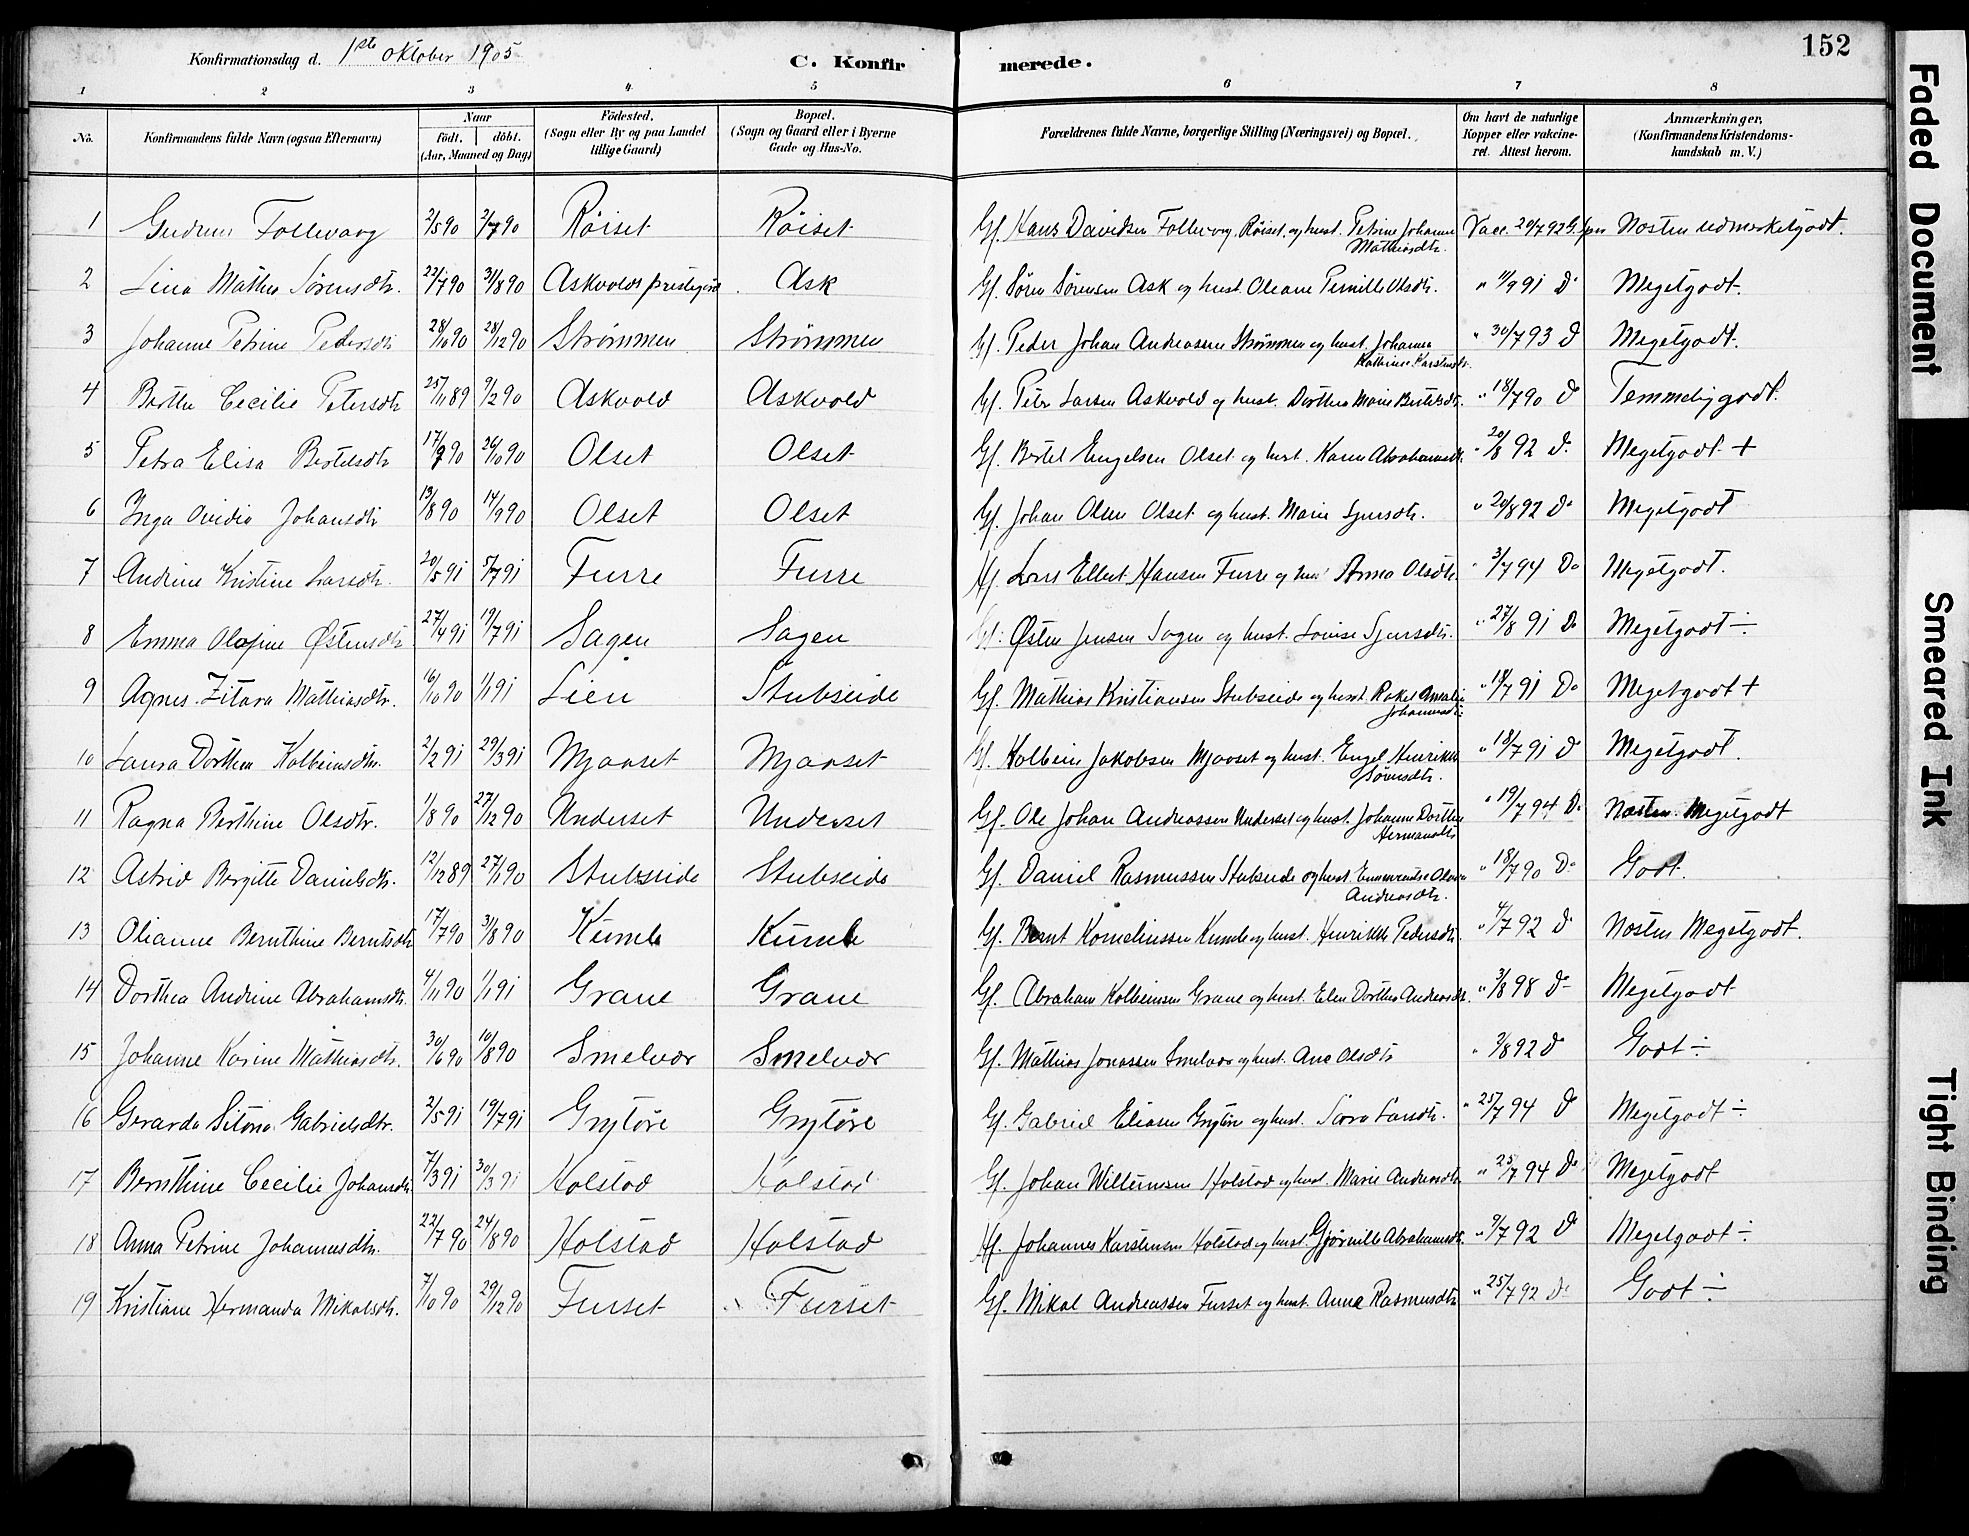 Konfirmationsdag d. 1ste Oktober 1905
C. Konfir merede.
152
1 2 3 4 5 6 7 8
No. Konfirmandens fulde Navn (ogsaa Efternavn) Naar födt. döbt. (Aar, Maaned og Dag) Födested. (Sogn eller By og paa Landet tillige Gaard) Bopæl. (Sogn og Gaard eller i Byerne Gade og Hus-No. Forældrenes fulde Navne, borgerlige Stilling (Næringsvei) og Bopæl. Om havt de naturlige Kopper eller vakcineret. Attest herom. Anmærkninger, (Konfirmandens Kristendomskundskab m. V.)
1 Gudrun Follevaag 2/5 90 2/7 90 Röiset Röiset Gf. Hans Davidsen Follevaag, Röiset, og hust. Petrine Johanne Mathiasdtr. Vacc. 20/7 92 Næsten udmerketgodt.
2 Lina Mathea Sørensdtr. 22/7 90 31/8 90 Askvolds prestegård Ask Gf. Søren Sørensen Ask og hust. Oleane Pernille Olsdtr. " 11/9 91 Do Megetgodt.
3 Johanne Petrine Pedersdtr 28/10 90 28/12 90 Strømmen Strømmen Gf. Peder Johan Andreassen Strømmen og hust. Johanne Kathrine Karstensdtr. " 30/7 93 Do Megetgodt.
4 Berthe Cecilie Petersdtr 25/11 89 9/2 90 Askvold Askvold Gf. Peter Larsen Askvold og hust. Dorthea Marie Bertelsdtr. " 18/7 90 Do Temmeligodt.
5 Petra Elisa Bertelsdtr 17/9 90 26/10 90 Olset Olset Gf. Bertel Engelsen Olset og hust. Karen Abrahamsdtr. " 20/8 92 Do Megetgodt +
6 Inga Ovidia Johansdtr 13/8 90 14/9 90 Olset Olset Gf. Johan Olsen Olset og hust. Marie Sjursdtr. " 20/8 92 Do Megetgodt
7 Andrine Kristine Larsdtr. 20/5 91 5/7 91 Furre Furre Gf. Lars Ellert Hansen Furre og hust Anna Olsdtr. " 3/7 94 Do Megetgodt.
8 Emma Olofine Østensdtr 27/4 91 19/7 91 Sagen Sagen Gf. Østen Jensen Sagen og hust. Lovise Sjursdtr. " 27/8 91 Do Megetgodt ÷
9 Agnes Zitara Mathiasdtr. 16/10 90 1/1 91 Lien Stubseide Gf. Mathias Kristiansen Stubseide og hust. Rakel Amalie Johannesdtr. " 14/7 91 Do Megetgodt +
10 Laura Dorthea Kolbeinsdtr. 2/2 91 29/3 91 Mjaaset Mjaaset Gf. Kolbein Jakobsen Mjaaset og hust. Engel Henrikke Sørensdtr. " 18/7 91 Do Megetgodt.
11 Ragna Berthine Olsdtr. 1/8 90 27/12 90 Underset Underset Gf. Ole Johan Andreassen Underset og hust. Johanne Dorthea Hermansdtr " 19/7 94 Do Næsten Megetgodt
12 Astrid Bergitte Danielsdtr. 12/12 89 27/1 90 Stubseide Stubseide Gf. Daniel Rasmussen Stubseide og hust. Andreasdtr. " 18/7 90 Do Godt.
13 Olianne Bernthine Berntsdtr 17/7 90 31/8 90 Kumle Kumle Gf. Bernt Korneliussen Kumle og hust. Henrikke Pedersdtr. " 4/7 92 Do Næsten Megetgodt.
14 Dorthea Andrine Abrahamsdtr. 4/11 90 1/1 91 Grane Grane Gf. Abraham Kolbeinsen Grane og hust. Elen Dorthea Andreasdtr. " 3/8 98 Do Megetgodt
15 Johanne Karine Mathiasdtr. 30/6 90 10/8 90 Smelvær Smelvær Gf. Mathias Jonassen Smelvær og hust. Ane Olsdtr " 3/8 92 Do Godt ÷
16 Gerarda Sitona Gabrielsdtr. 2/5 91 19/7 91 Grytöre Grytöre Gf. Gabriel Eliasen Grytöre og hust. Sara Larsdtr. " 25/7 94 Do Megetgodt ÷
17 Bernthine Cecilie Johansdtr 7/3 91 30/3 91 Holstad Holstad Gf. Johan Willumsen Holstad og hust. Marie Andreasdtr " 25/7 94 Do Megetgodt
18 Anna Petrine Johannesdtr. 22/7 90 24/8 90 Holstad Holstad Gf. Johannes Karstensen Holstad og hust. Gjørnille Abrahamsdtr. " 9/7 92 Do Megetgodt ÷
19 Kristiane Hermanda Mikalsdtr. 7/10 90 29/12 90 Furset Furset Gf. Mikal Andreassen Furset og hust. Anna Rasmusdtr " 25/7 92 Do Godt ÷
Faded Document
Smeared Ink
Tight Binding